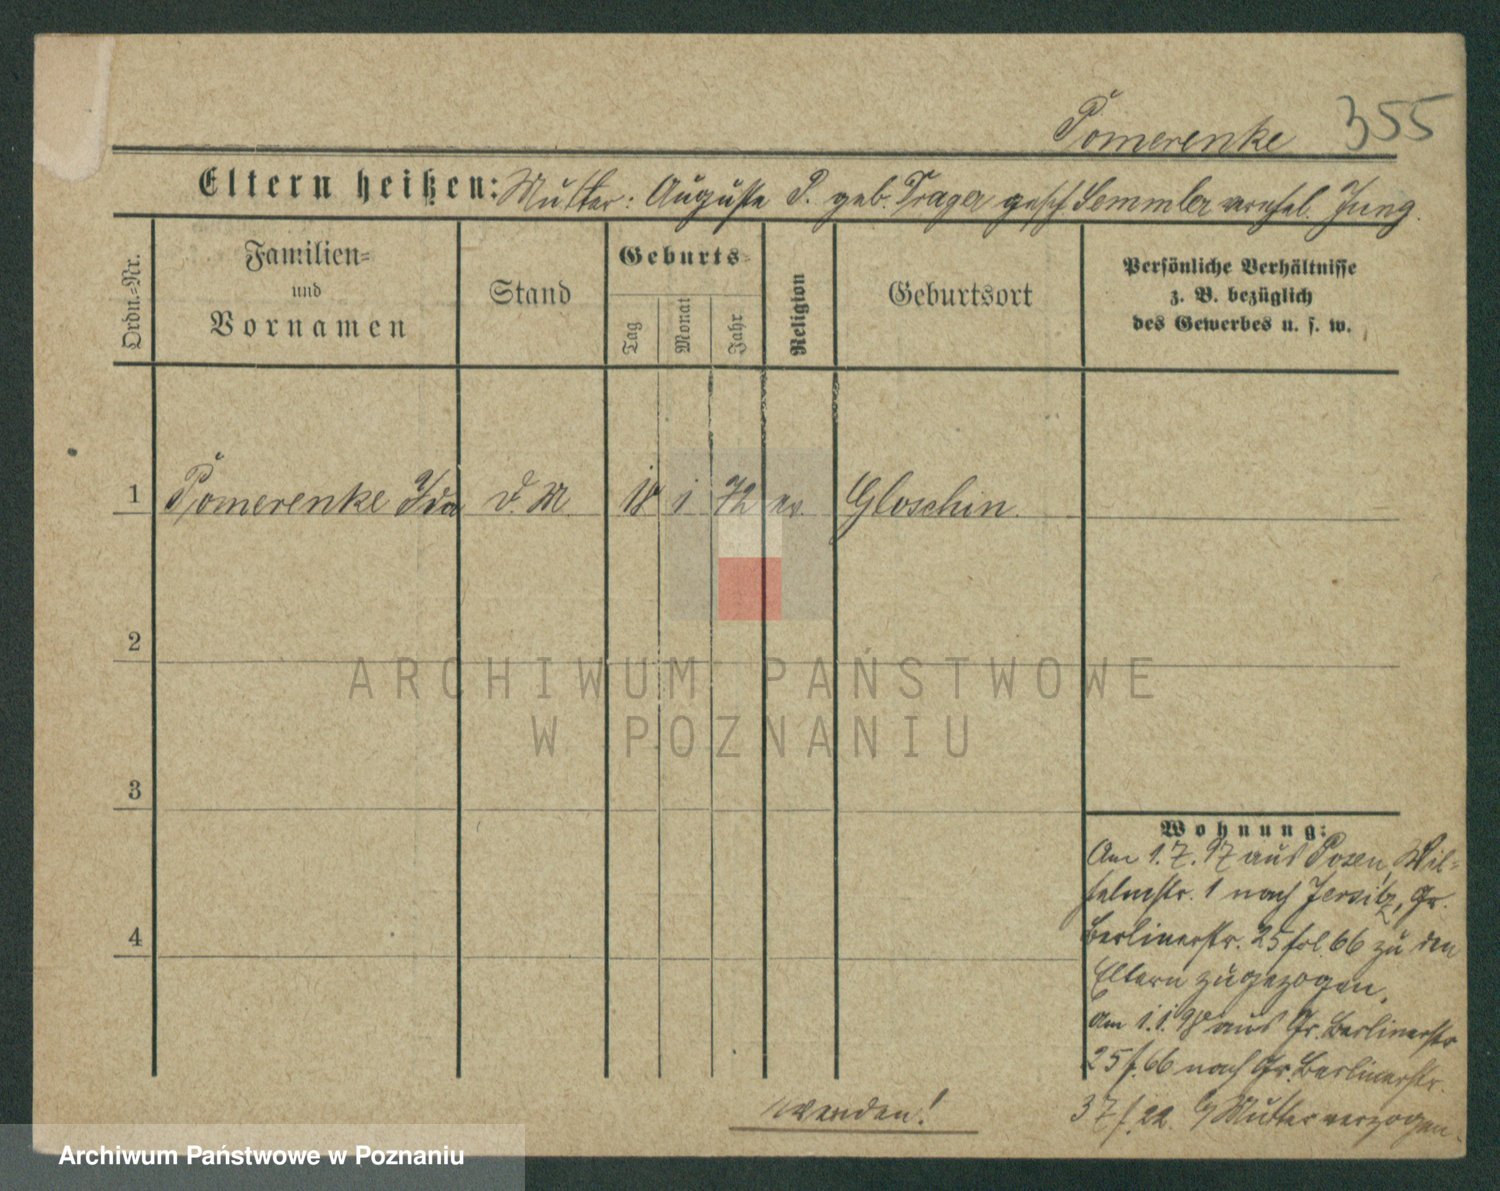 Pomerenke 355
Eltern heißen: Mutter: Auguste P. geb. Trager gesch. Semmler verehel. Jung.
Ordn.-Nr.
Familien-
und
Vornamen
Stand
Geburts-
Tag
Monat
Jahr
Religion
Geburtsort
Persönliche Verhältnisse
z. B. bezüglich
des Gewerbes u. s. w.
1 Pomerenke Ida d. M. 18 1 72 ev. Gloschin.
2
3
4
Wohnung:
Am 1.7.97 aus Posen, Wil-
helmstr. 1 nach Jersitz, Gr.
Berlinerstr. 25 fol. 66 zu den
Eltern zugezogen.
Am 1.1.98 aus Gr. Berlinerstr.
25 f. 66 nach Gr. Berlinerstr.
37 f. 22. Mutter verzogen.
wenden!
ARCHIWUM PAŃSTWOWE
W POZNANIU
Archiwum Państwowe w Poznaniu